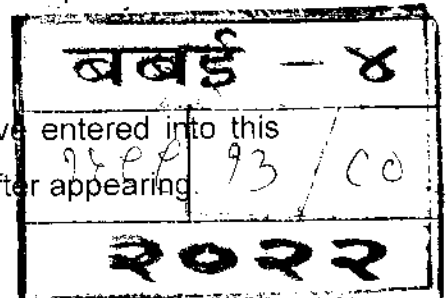 बबई - ४
ve entered into this
१३ / ८०
ter appearing.
२०२२